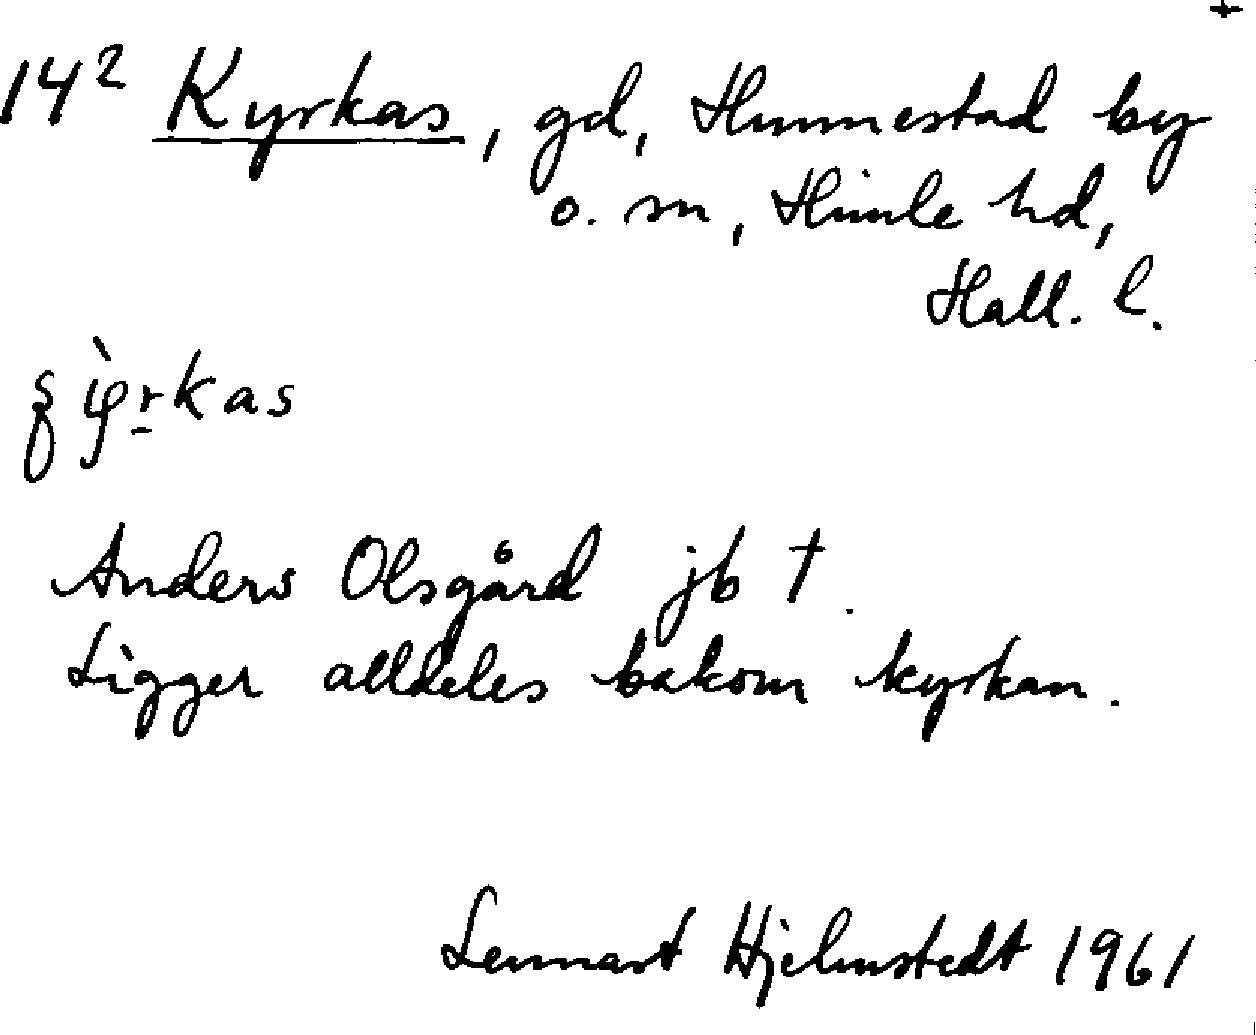 14² Kyrkas, gd, Hunnestad by
o. sn, Himle hd,
Hall. l.
Anders Olsgård jb †.
Ligger alldeles bakom kyrkan.
Lennart Hjelmstedt 1961